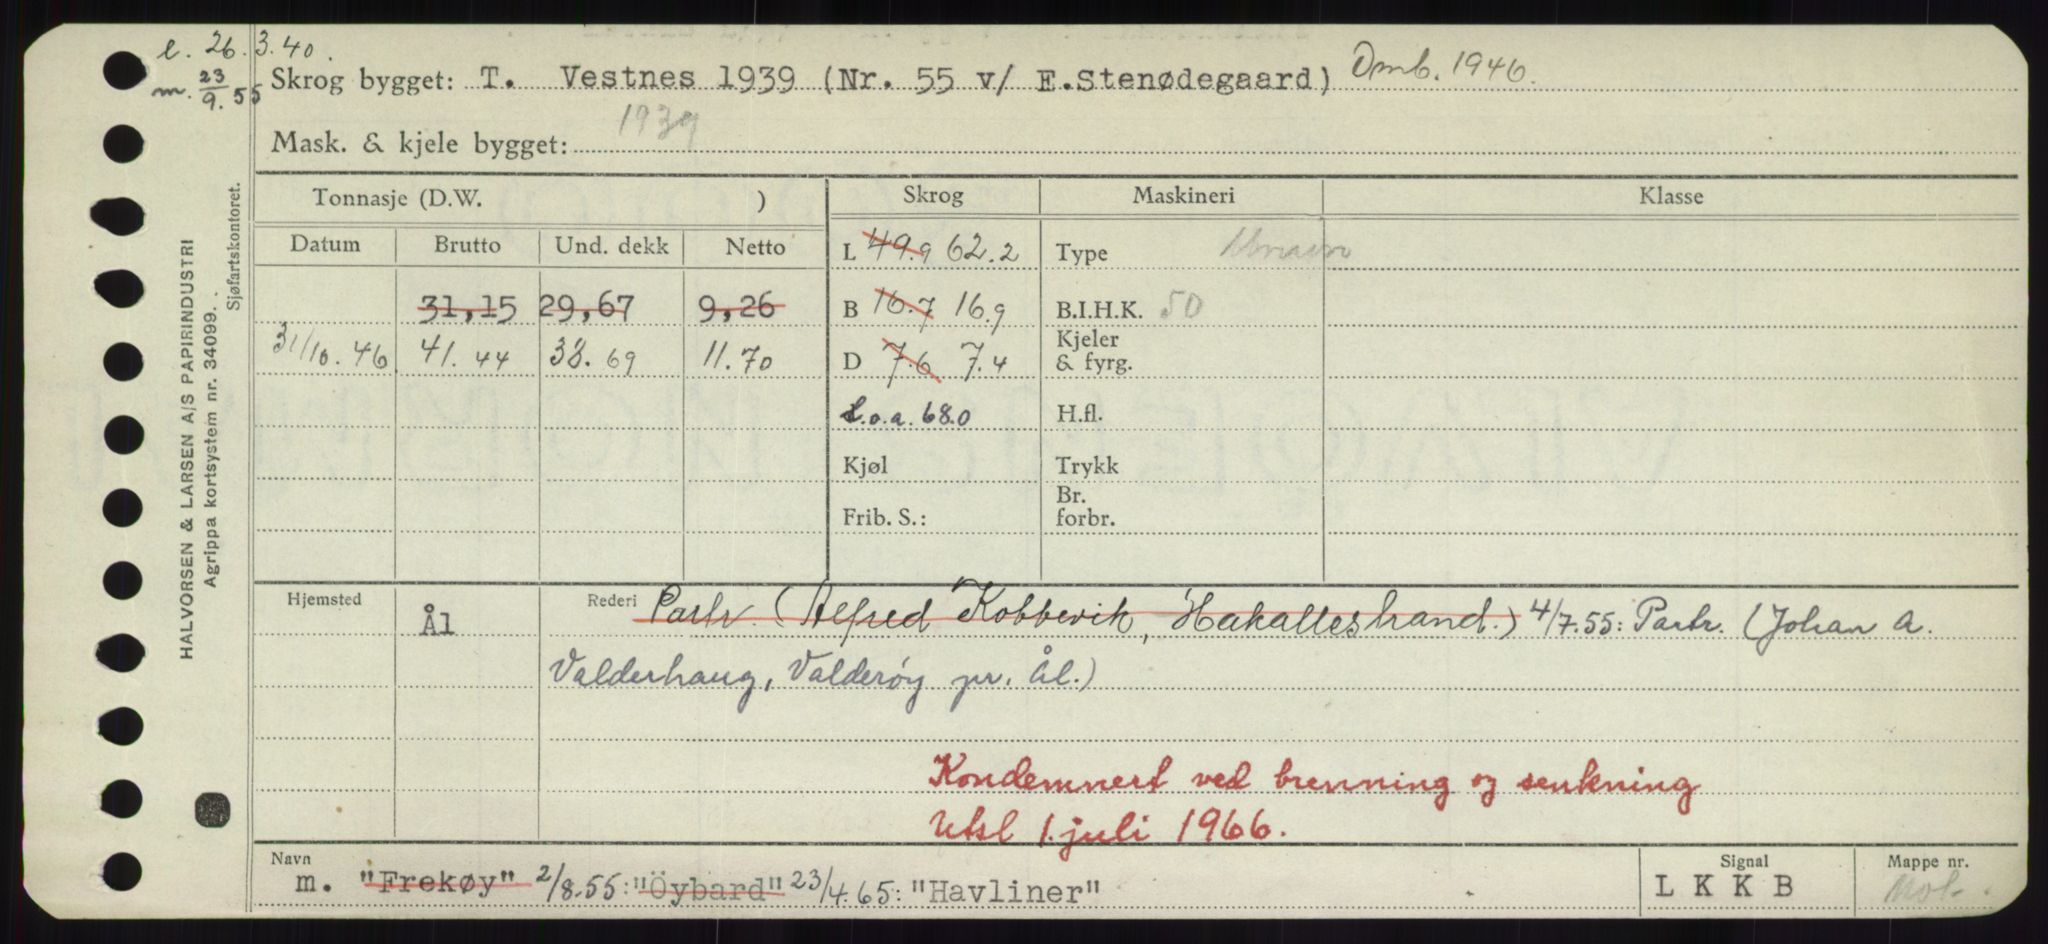 l. 26.3.40.
m. 23/9.55
Skrog bygget: T. Vestnes 1939 (Nr. 55 v/ E.Stenødegaard) Omb. 1946.
Mask. & kjele bygget: 1939
Tonnasje (D.W. ) Skrog Maskineri Klasse
Datum Brutto Und. dekk Netto L 49.9 62.2 Type
31,15 29,67 9,26 B 16.7 16.9 B.I.H.K. 50
31/10.46 41.44 38.69 11.70 D 7.6 7.4 Kjeler & fyrg.
L.o.a. 68.0 H.fl.
Kjøl Trykk
Frib. S.: Br. forbr.
Hjemsted Ål Rederi Partr. (Alfred Kobbevik, Hakallestrand.) 4/7.55: Partr. (Johan A.
Valderhaug, Valderøy pr. Ål.)
Kondemnert ved brenning og senkning
Utsl 1. juli 1966.
Navn Signal Mappe nr.
m. "Frekøy" 2/8.55: "Öybard" 23/4.65: "Havliner" L K K B Mot.
HALVORSEN & LARSEN A/S PAPIRINDUSTRI
Agrippa kortsystem nr. 34099.
Sjøfartskontoret.